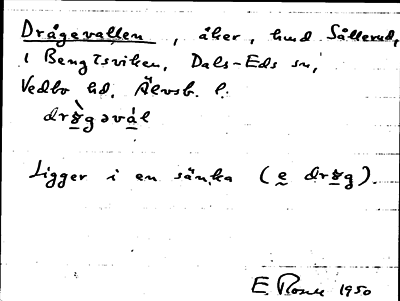 Drågevallen, åker, hmd Sållerud,
i Bengtsviken, Dals-Eds sn,
Vedbo hd, Älvsb. l.
Ligger i en sänka (e
E. Rosell 1950